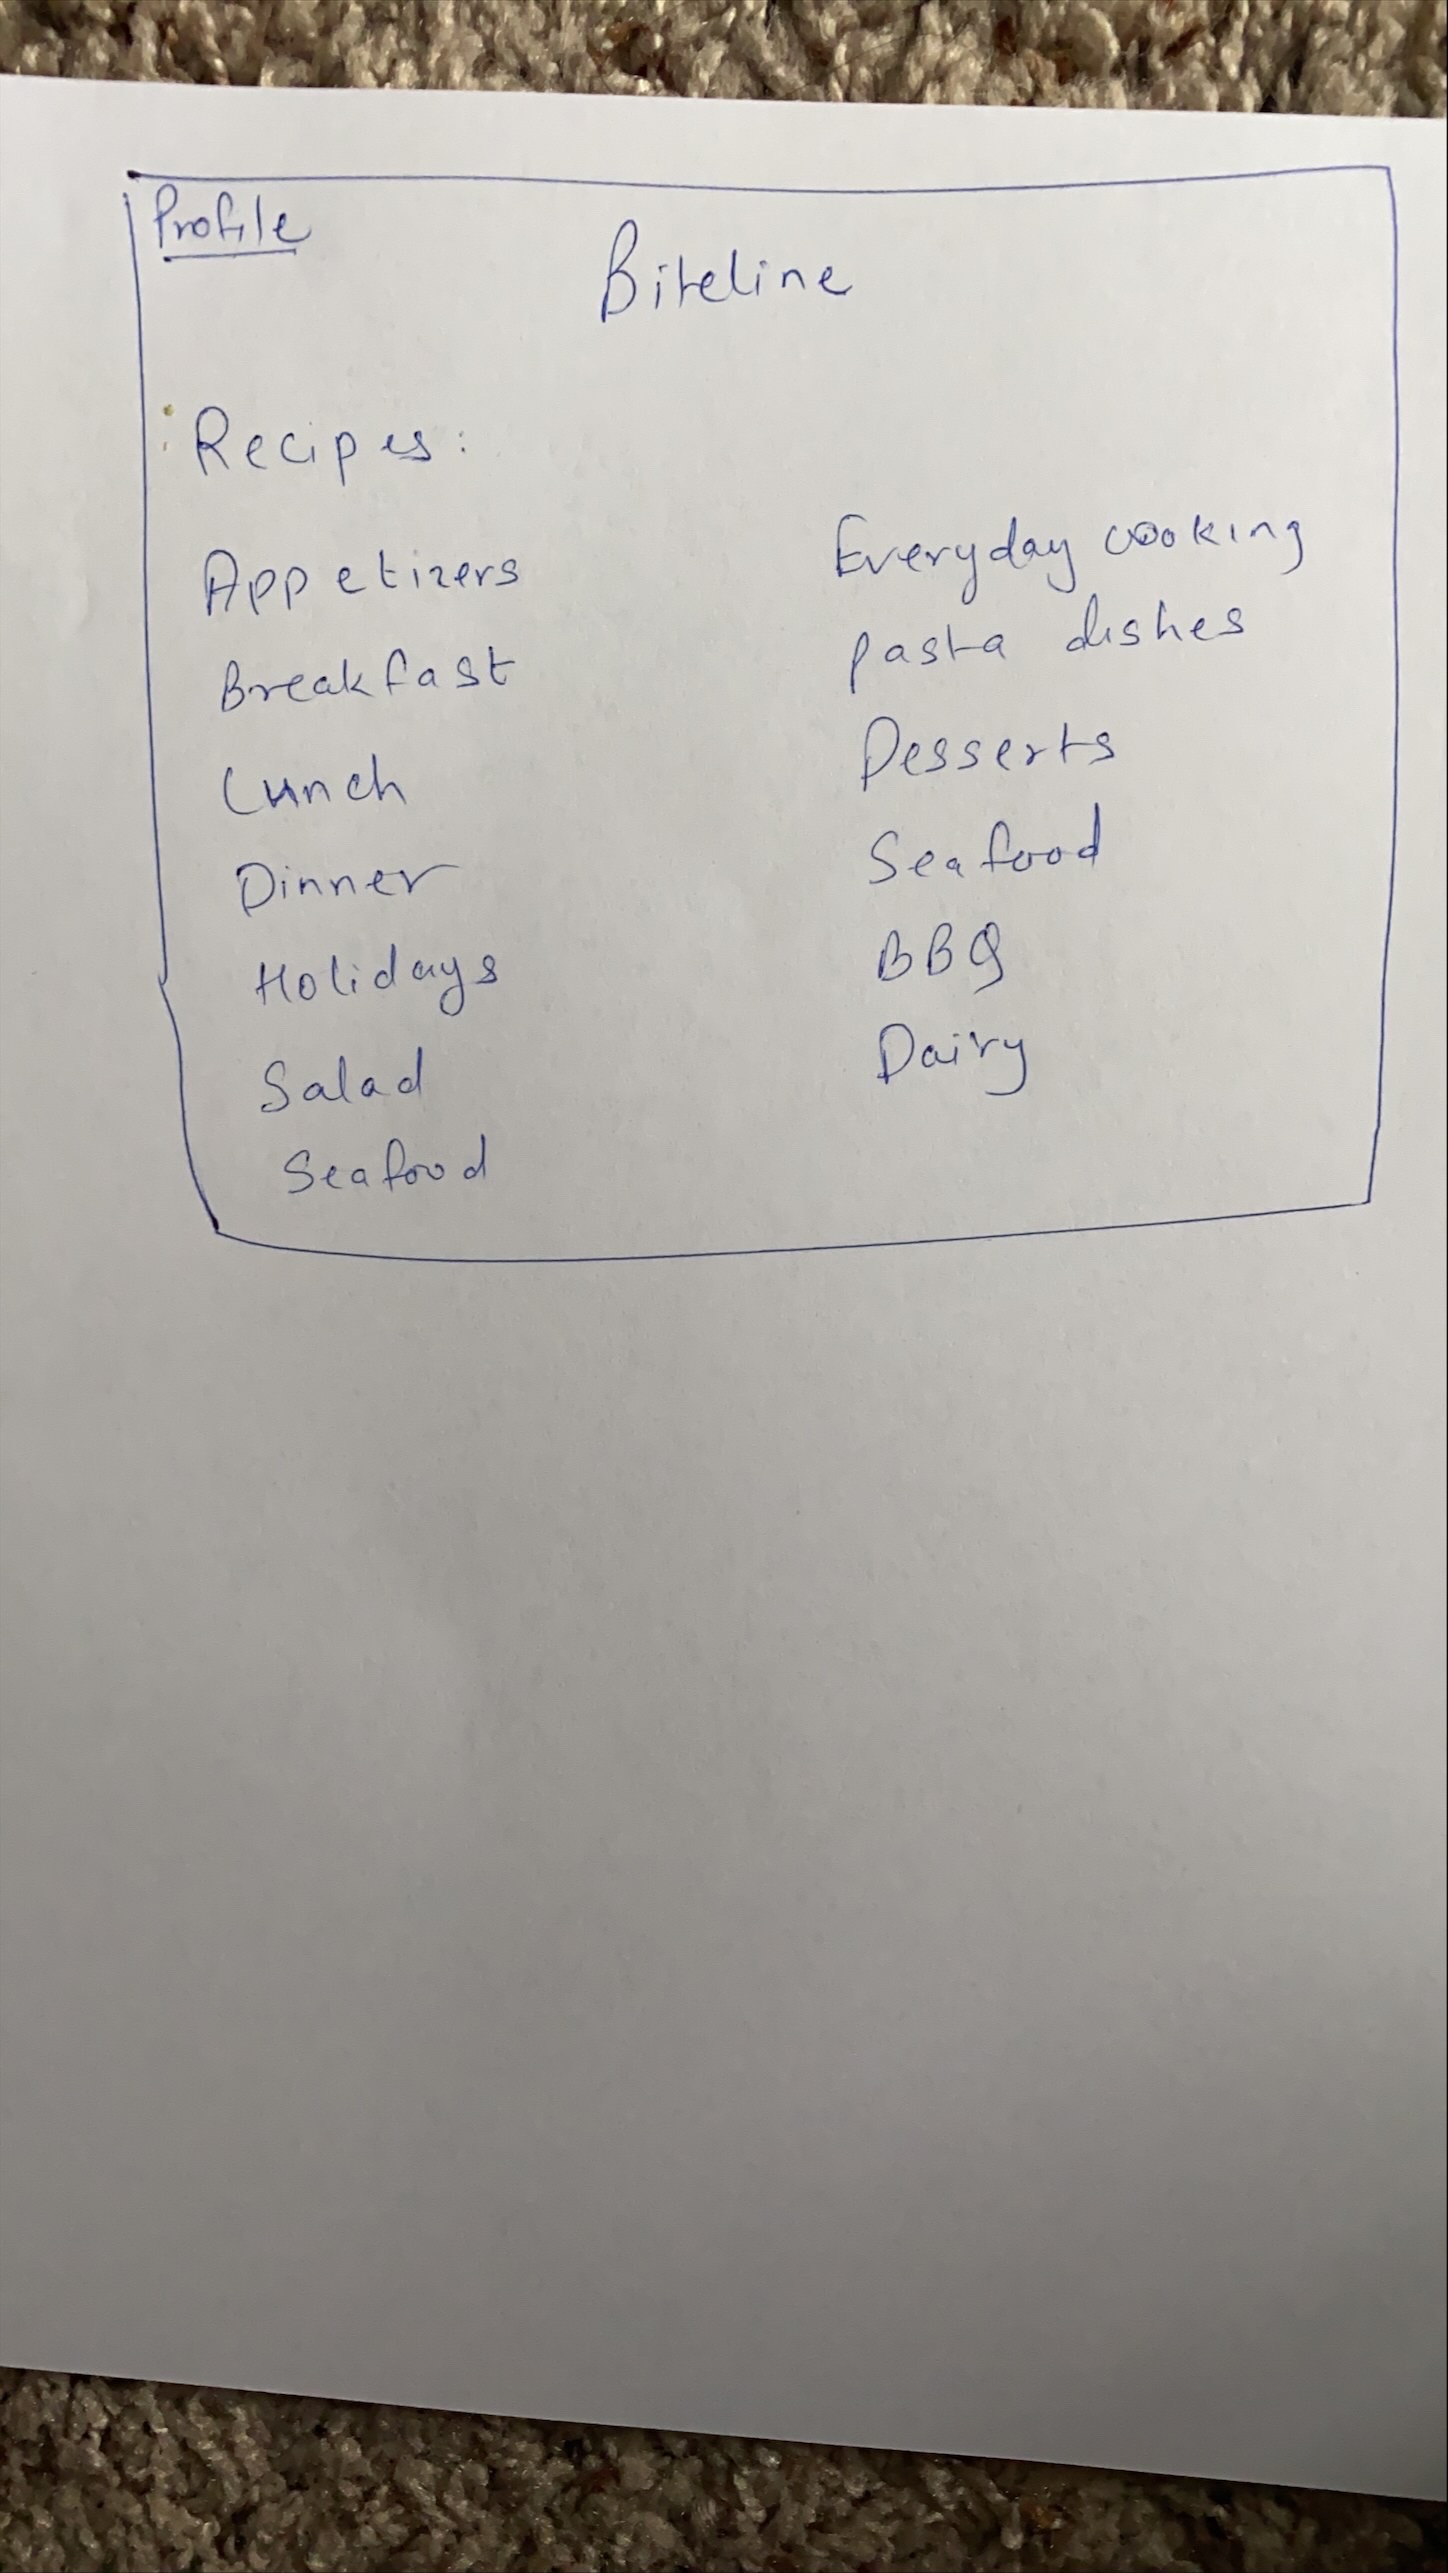 Profile
Biteline
Recipes:
Appetizers
Breakfast
Lunch
Dinner
Holidays
Salad
Seafood
Everyday cooking
pasta dishes
Desserts
Seafood
BBQ
Dairy